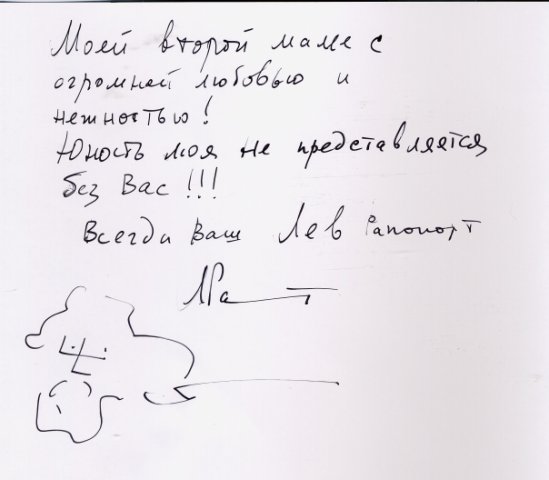 Моей второй маме с
огромной любовью и
нежностью!
Юность моя не представляется
без Вас!!!
Всегда Ваш Лев Рапопорт
ЛРа